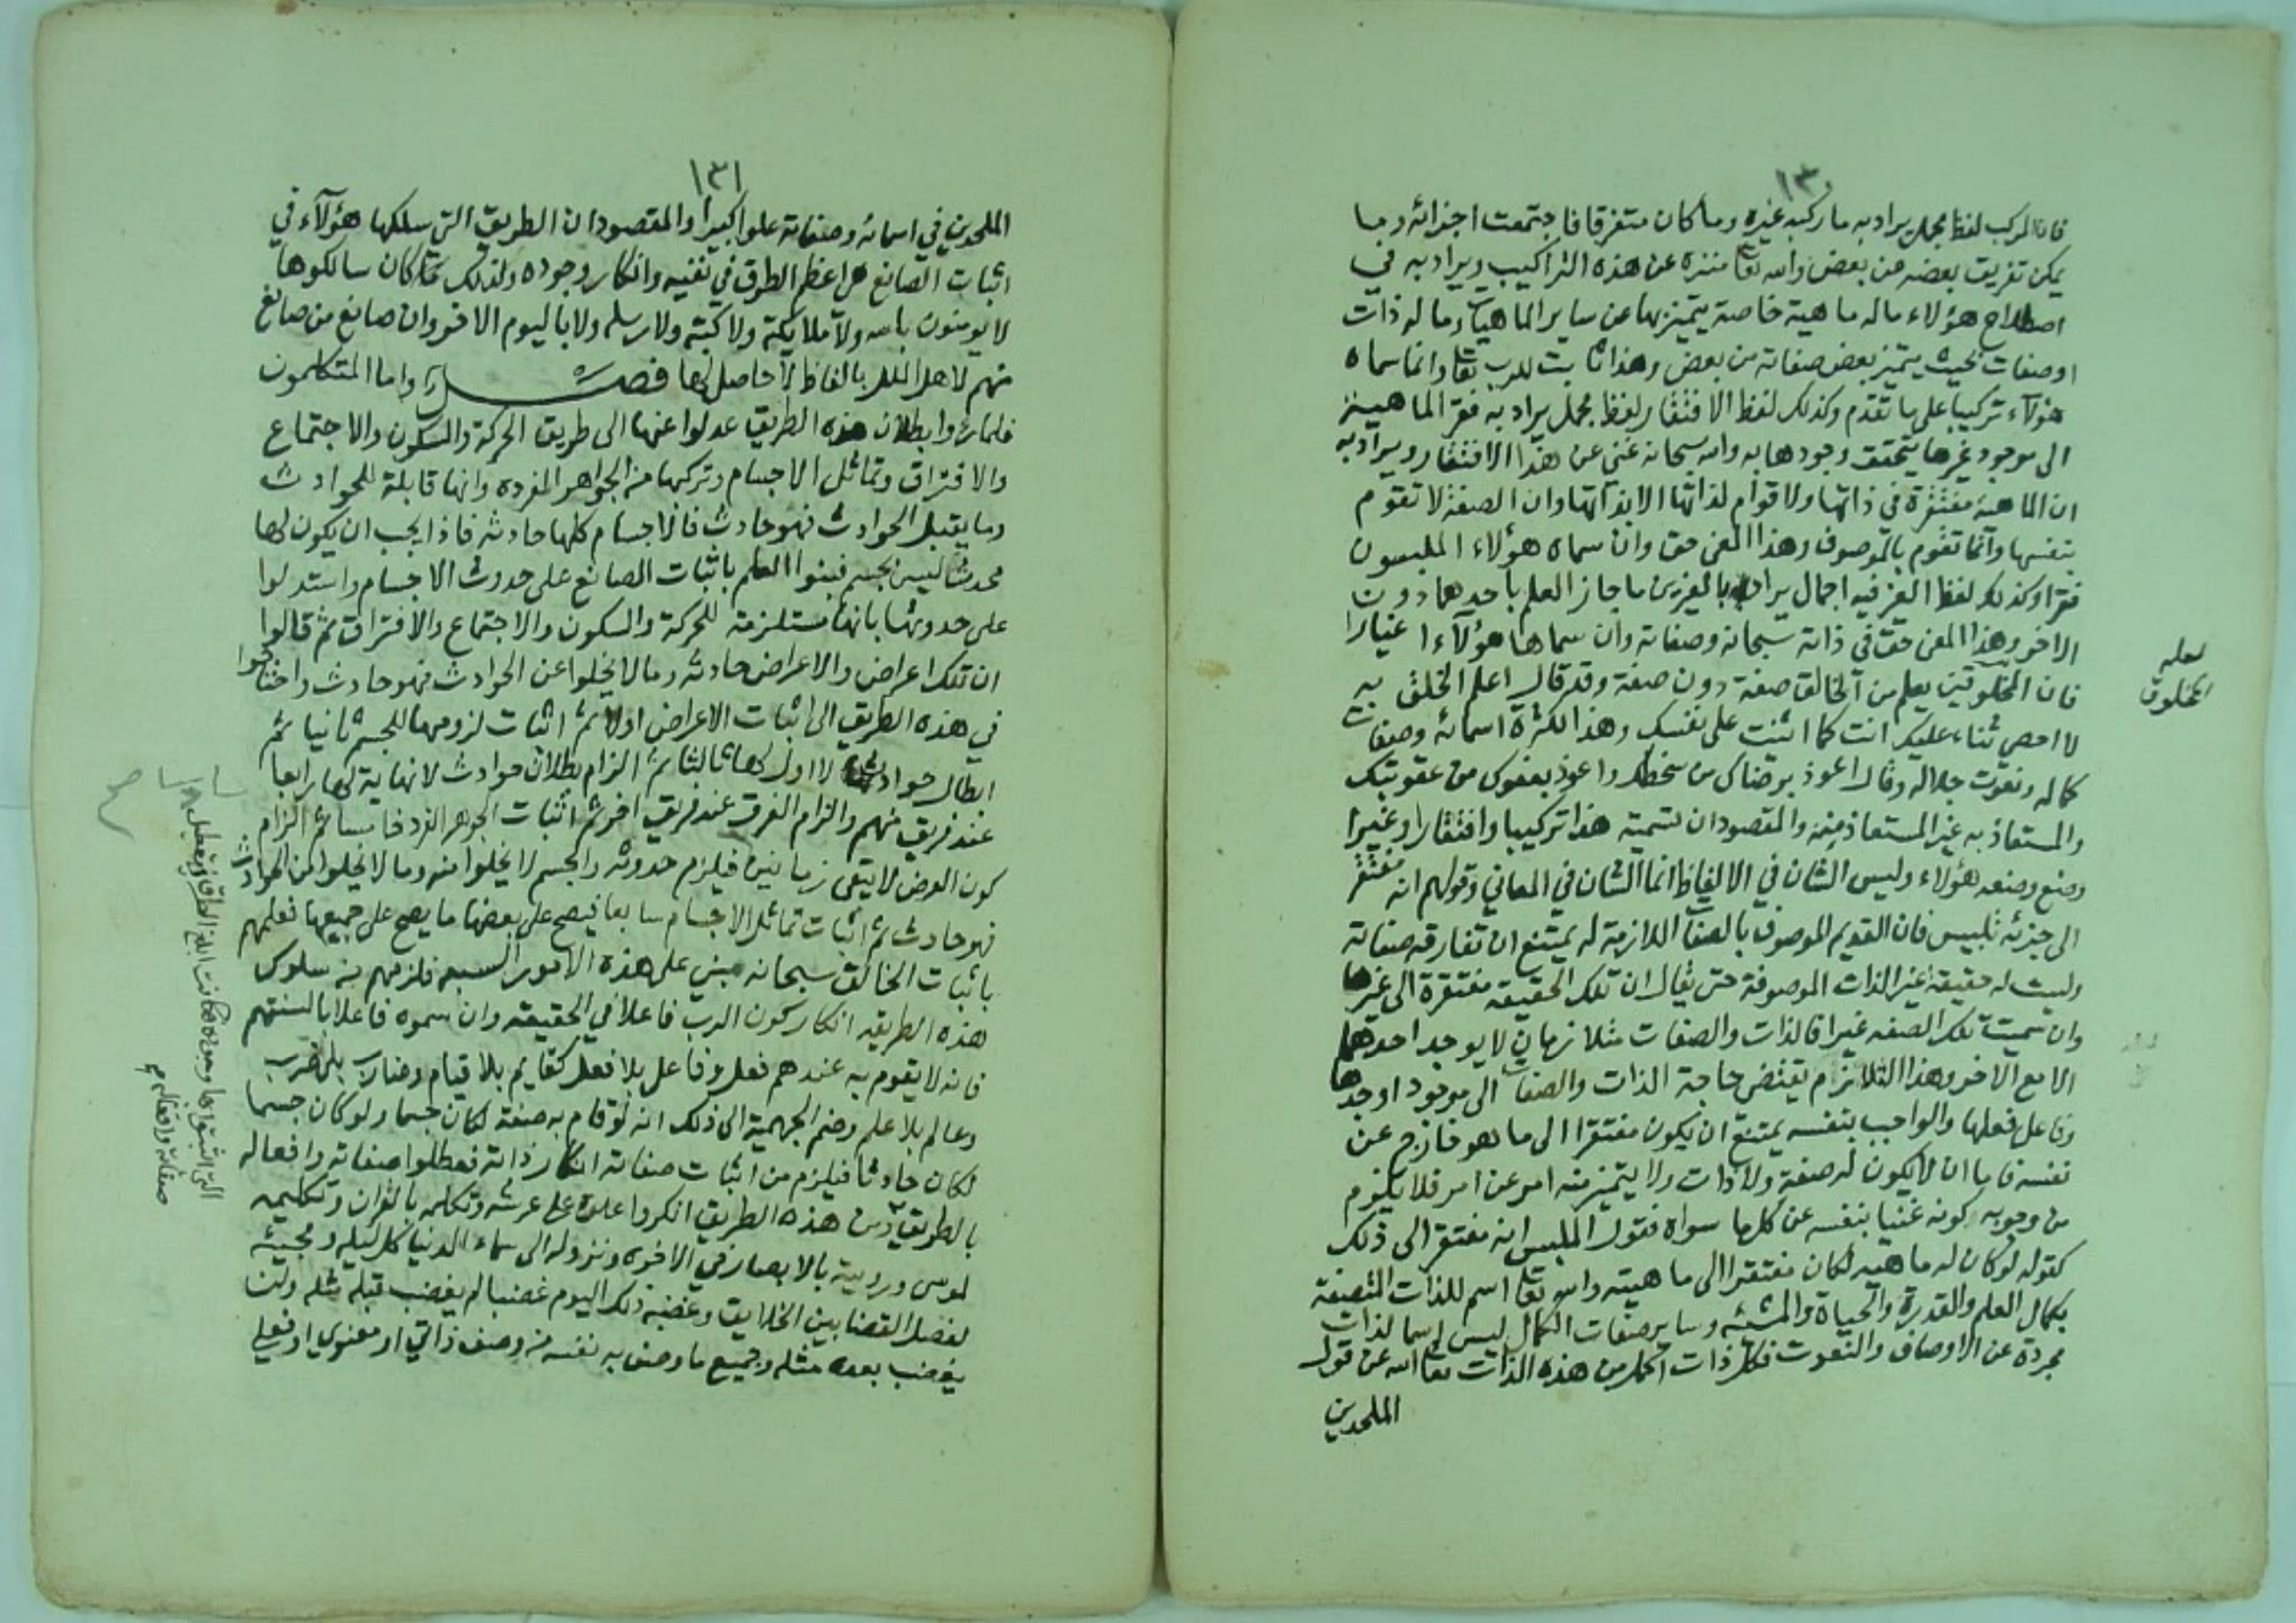 ١٣٠
فان المركب لفظ مجمل يراد به ما ركبه غيره وما كان متفرقا فاجتمعت اجزائه وما
يمكن تفريق بعضه من بعض والله تعا منزه عن هذه التراكيب ويراد به في
اصطلاح هؤلاء ماله ماهية خاصة يتميز بها عن ساير الماهيات وما له ذات
وصفات بحيث يتميز بعض صفاته من بعض وهذا ثابت للرب تعا وانما سماه
هؤلآء تركيبا على ما تقدم وكذلك لفظ الافتقار لفظ مجمل يراد به فقر الماهية
الى موجود غيرها يتحقق وجودها به والله سبحانه غني عن هذا الافتقار ويراد به
ان الماهية مفتقرة في ذاتها ولا قوام لذاتها الا بذاتها وان الصفة لا تقوم
بنفسها وانما تقوم بالموصوف وهذا المعنى حق وان سماه هؤلاء الملبسون
فقرا وكذلك لفظ الغير فيه اجمال يراد به بالغيرين ما جاز العلم باحدهما دون
الاخر وهذا المعنى حق في ذاته سبحانه وصفاته وان سماها هؤلآء اغيارا
فان المخلوقين يعلم من الخالق صفة دون صفة وقد قال اعلم الخلق به
لا احصي ثناء عليك انت كما اثنيت على نفسك وهذا لكثرة اسمائه وصفات
كماله ونعوت جلاله وقال اعوذ برضاك من سخطك واعوذ بعفوك من عقوبتك
والمستعاذ به غير المستعاذ منه والمقصود ان تسمية هذا تركيبا وافتقارا وغيرا
وضع وضعه هؤلاء وليس الشان في الالفاظ انما الشان في المعاني وقولهم انه مفتقر
الى جزئه تلبيس فان القديم الموصوف بالصفات اللازمة له يمتنع ان تفارقه صفاته
وليست له حقيقة غير الذات الموصوفة حتى يقال ان تلك الحقيقة مفتقرة الى غيرها
وان سميت تلك الصفه غيرا فالذات والصفات متلازمان لا يوجد احدهما
الا مع الاخر وهذا التلازم يقتضي حاجة الذات والصفات الى موجود اوجدها
وفاعل فعلها والواجب بنفسه يمتنع ان يكون مفتقرا الى ما هو خارج عن
نفسه فاما ان لا يكون له صفة ولا ذات ولا يتميز منه امر عن امر فلا يلزم
من وجوبه كونه غنيا بنفسه عن كلما سواه فقول الملبس انه مفتقر الى ذلك
كقوله لو كان له ماهيه لكان مفتقرا الى ماهيته والله تعا اسم للذات المتصفة
بكمال العلم والقدرة والحياة والمشئه وساير صفات الكمال ليس اسما لذات
مجردة عن الاوصاف والنعوت فكل ذات اكمل من هذه الذات تعا الله عن قول
الملحدين
لعله
المخلوق
١٣١
الملحدين في اسمائه وصفاته علوا كبيرا والمقصود ان الطريق التي سلكها هؤلآء في
اثبات الصانع هي اعظم الطرق في نفيه وانكار وجوده ولذلك كان سالكوها
لا يومنون بالله ولا ملايكته ولا كتبه ولا رسله ولا باليوم الاخر وان صانع من صانع
منهم لاهل الملل بالفاظ لا حاصل لها فصل واما المتكلمون
فلما رأوا بطلان هذه الطريق عدلوا عنها الى طريق الحركة والسكون والاجتماع
والافتراق وتماثل الاجسام وتركبها من الجواهر المفرده وانها قابلة للحوادث
وما يقبل الحوادث فهو حادث فالاجسام كلها حادثه فاذا يجب ان يكون لها
محدثا ليس بجسم فبنوا العلم باثبات الصانع على حدوث الاجسام واستدلوا
على حدوثها بانها مستلزمة للحركة والسكون والاجتماع والافتراق ثم قالوا
ان تلك اعراض والاعراض حادثه وما لا يخلوا عن الحوادث فهو حادث واحتاجوا
في هذه الطريق الى اثبات الاعراض اولا ثم اثبات لزومها للجسم ثانيا ثم
ابطال حوادث لا اول لها ثالثا ثم الزام بطلان حوادث لا نهاية لها رابعا
عند فريق منهم والزام الفرق عند فريق اخر ثم اثبات الجوهر الفرد خامسا ثم الزام
كون العرض لا يبقى زمانين فيلزم حدوثه والجسم لا يخلوا منه وما لا يخلوا من الحوادث
فهو حادث ثم اثبات تماثل الاجسام سابعا فيصح على بعضها ما يصح على جميعها فعلمهم
باثبات الخالق سبحانه مبني على هذه الامور السبعه فلزمهم من سلوك
هذه الطريقه انكار كون الرب فاعلا في الحقيقه وان سموه فاعلا بالسنتهم
فانه لا يقوم به عندهم فعل وفاعل بلا فعل كقايم بلا قيام وضارب بلا ضرب
وعالم بلا علم وضم الجهمية الى ذلك انه لو قام به صفة لكان جسما ولو كان جسما
لكان حادثا فيلزم من اثبات صفاته انكار ذاته فعطلوا صفاته وافعاله
بالطريق ومن هذه الطريق انكروا علوه على عرشه وتكلمه بالقران وتكليمه
لموسى ورويته بالابصار في الاخره ونزوله الى سماء الدنيا كل ليله ومجيئه
لفصل القضا بين الخلايق وغضبه ذلك اليوم غضبا لم يغضب قبله مثله ولن
يغضب بعده مثله وجميع ما وصف به نفسه من وصف ذاتي او معنوي او فعلي
التي اثبتوا بها وجوده فكانت ابلغ الطرق في تعطيل
صفاته وافعاله